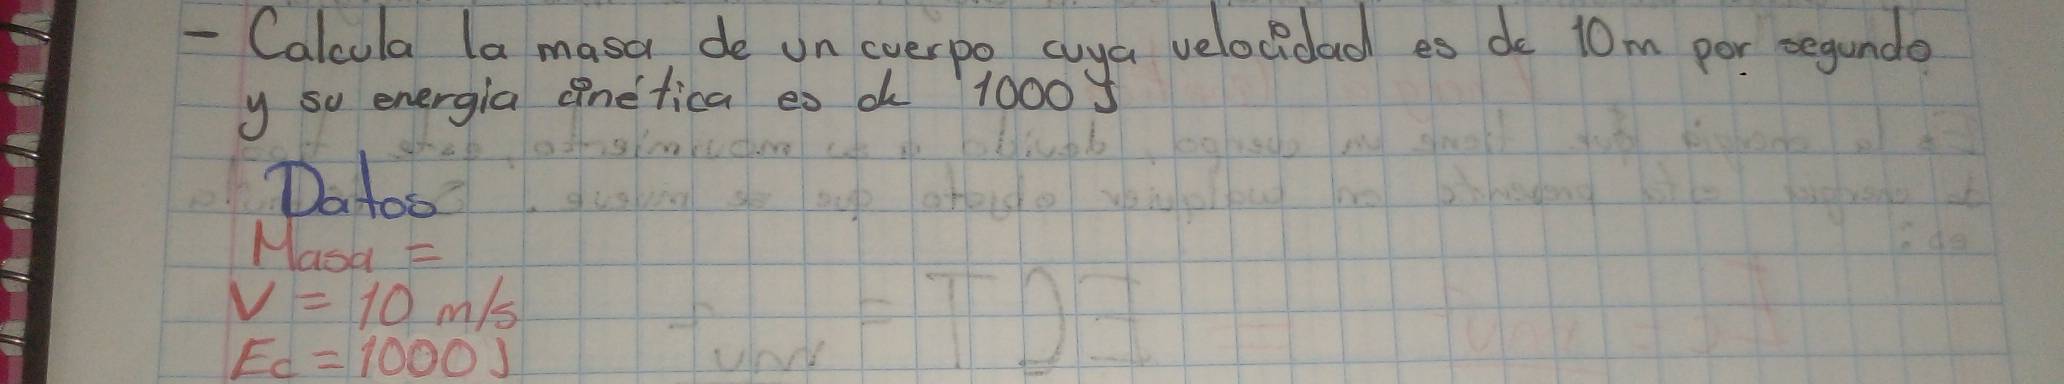 - Calcula la masa de un cuerpo cuya velocidad es de 10m por segundo
y su energía cinética es de 1000 J
Datos
Masa =
V = 10 m/s
Ec = 1000 J